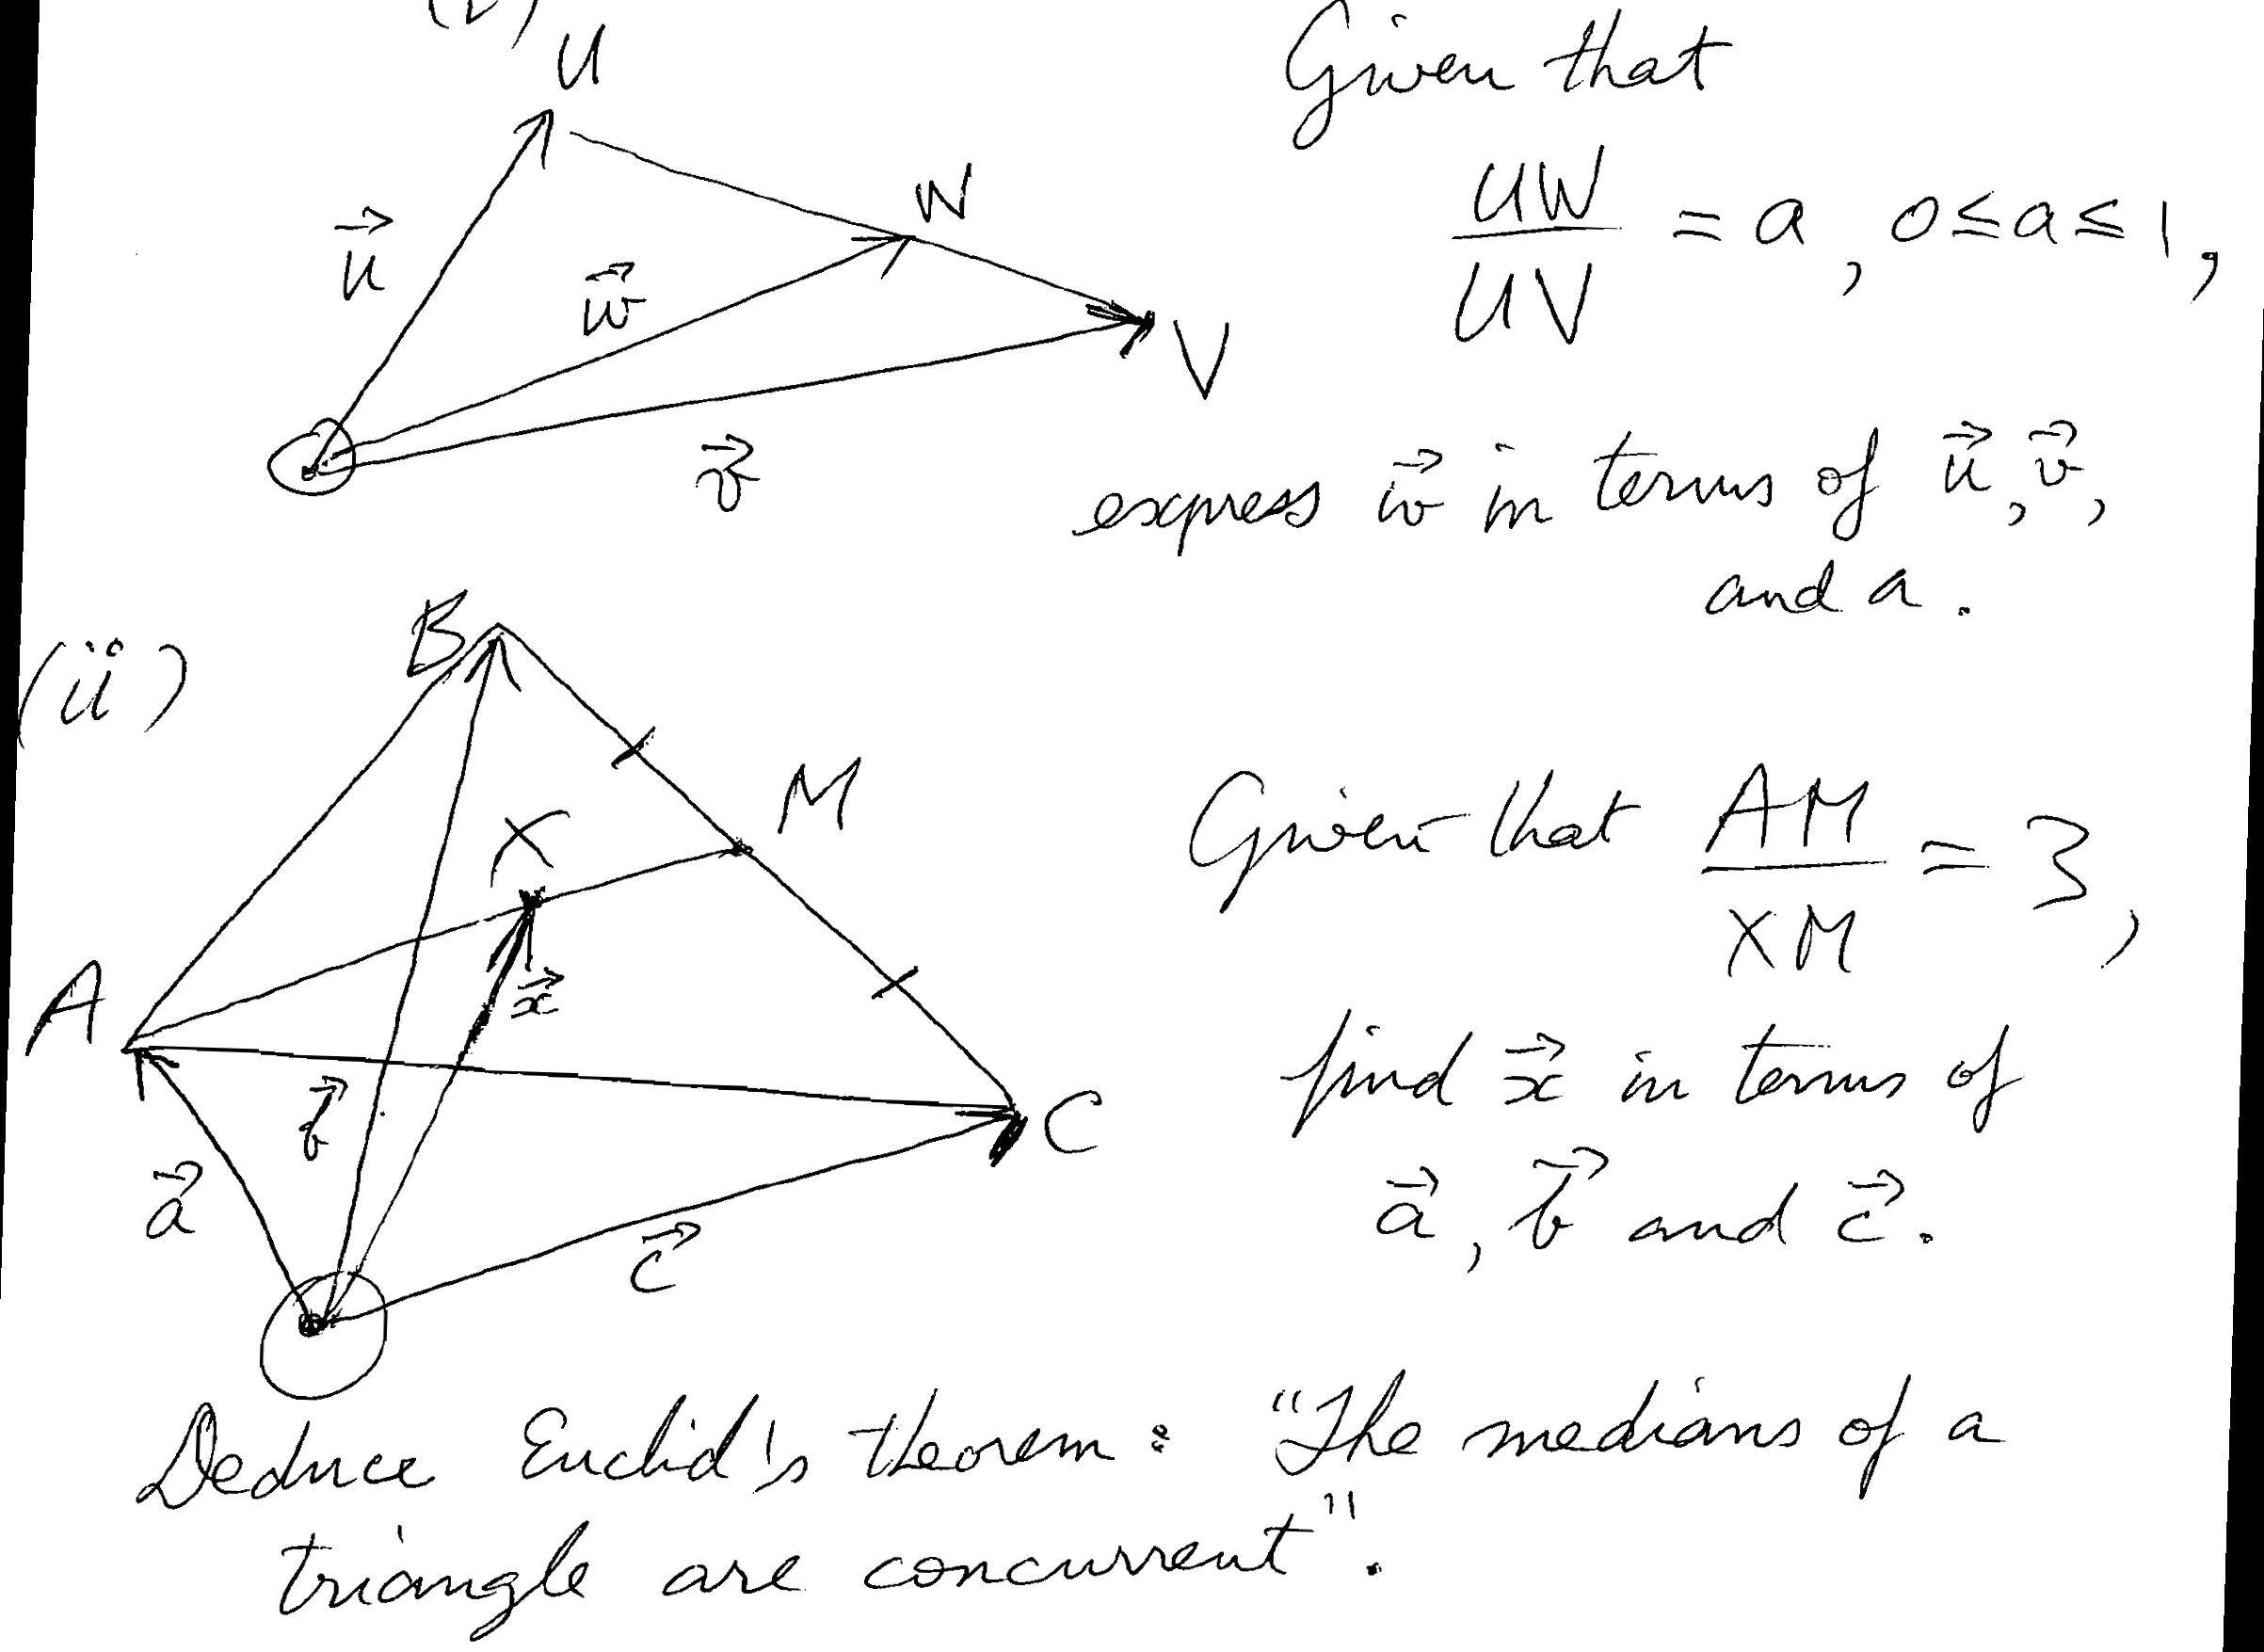 (i)
U
Given that
UW/UV = a, 0 ≤ a ≤ 1,
W
u⃗
w⃗
V
v⃗
express w⃗ in terms of u⃗, v⃗,
and a.
(ii)
B
M
X
Given that AM/XM = 3,
A
x⃗
find x⃗ in terms of
b⃗
C
a⃗
a⃗, b⃗ and c⃗.
c⃗
Deduce Euclid's theorem: "The medians of a
triangle are concurrent".